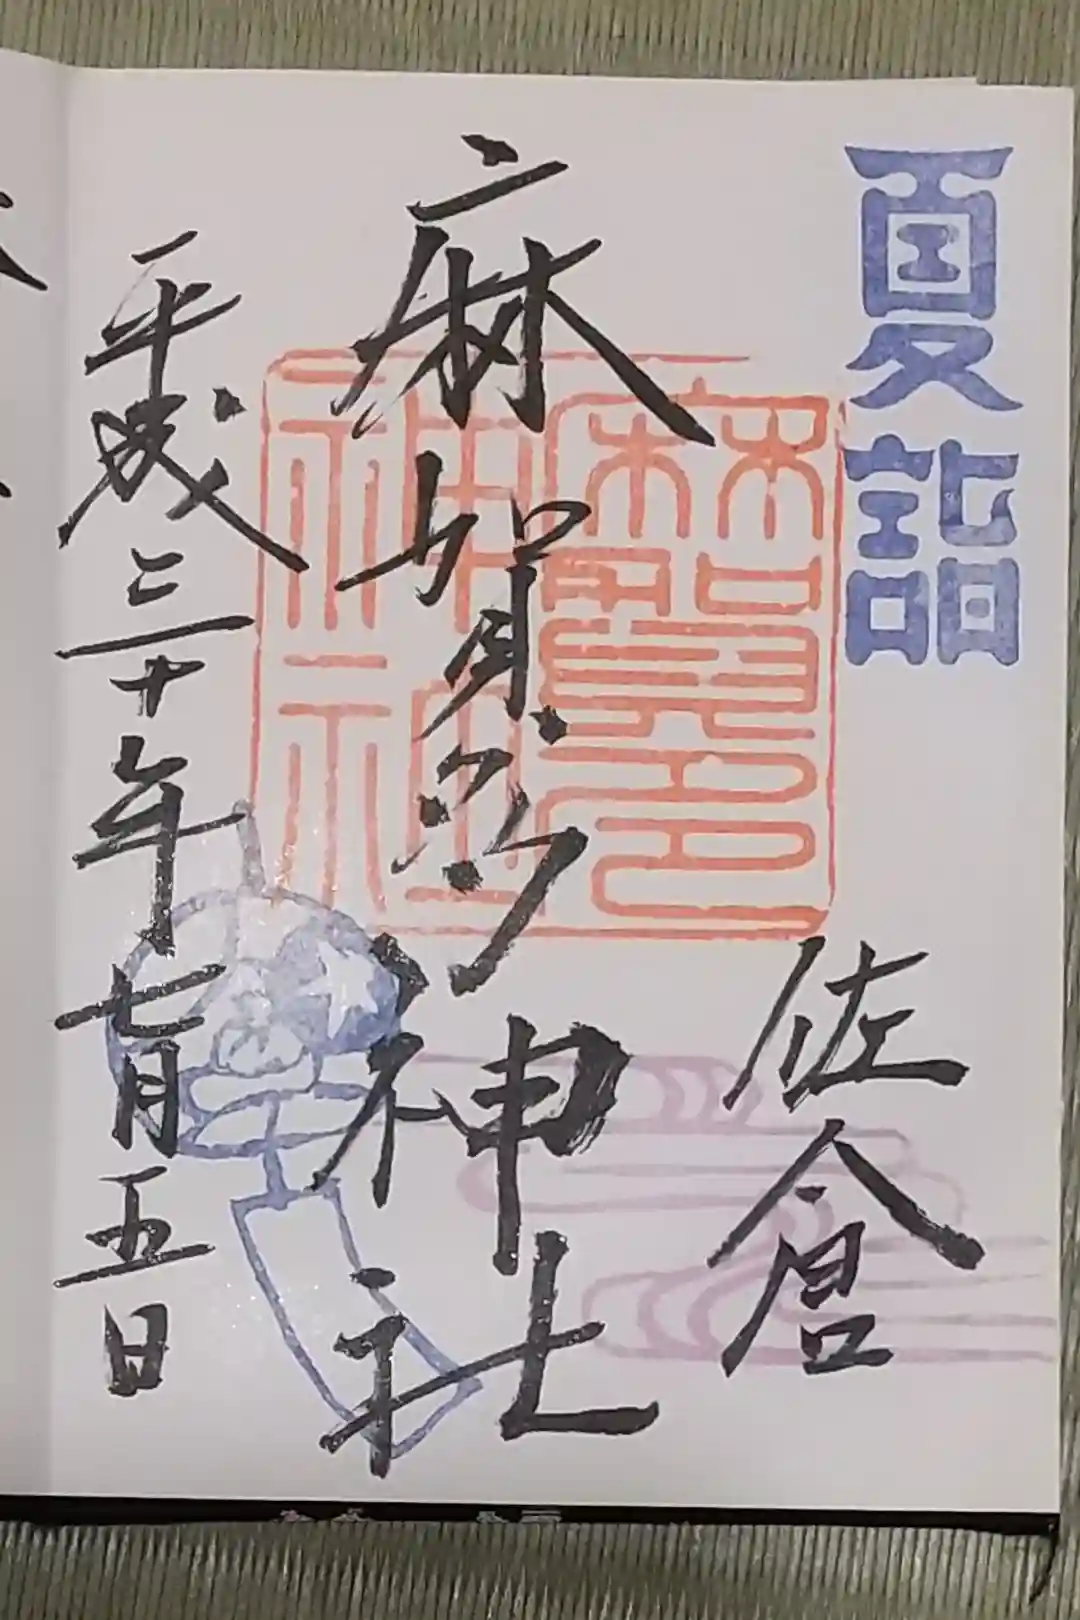 夏詣
佐倉
麻賀多神社
麻賀多
神社
平成三十年七月五日